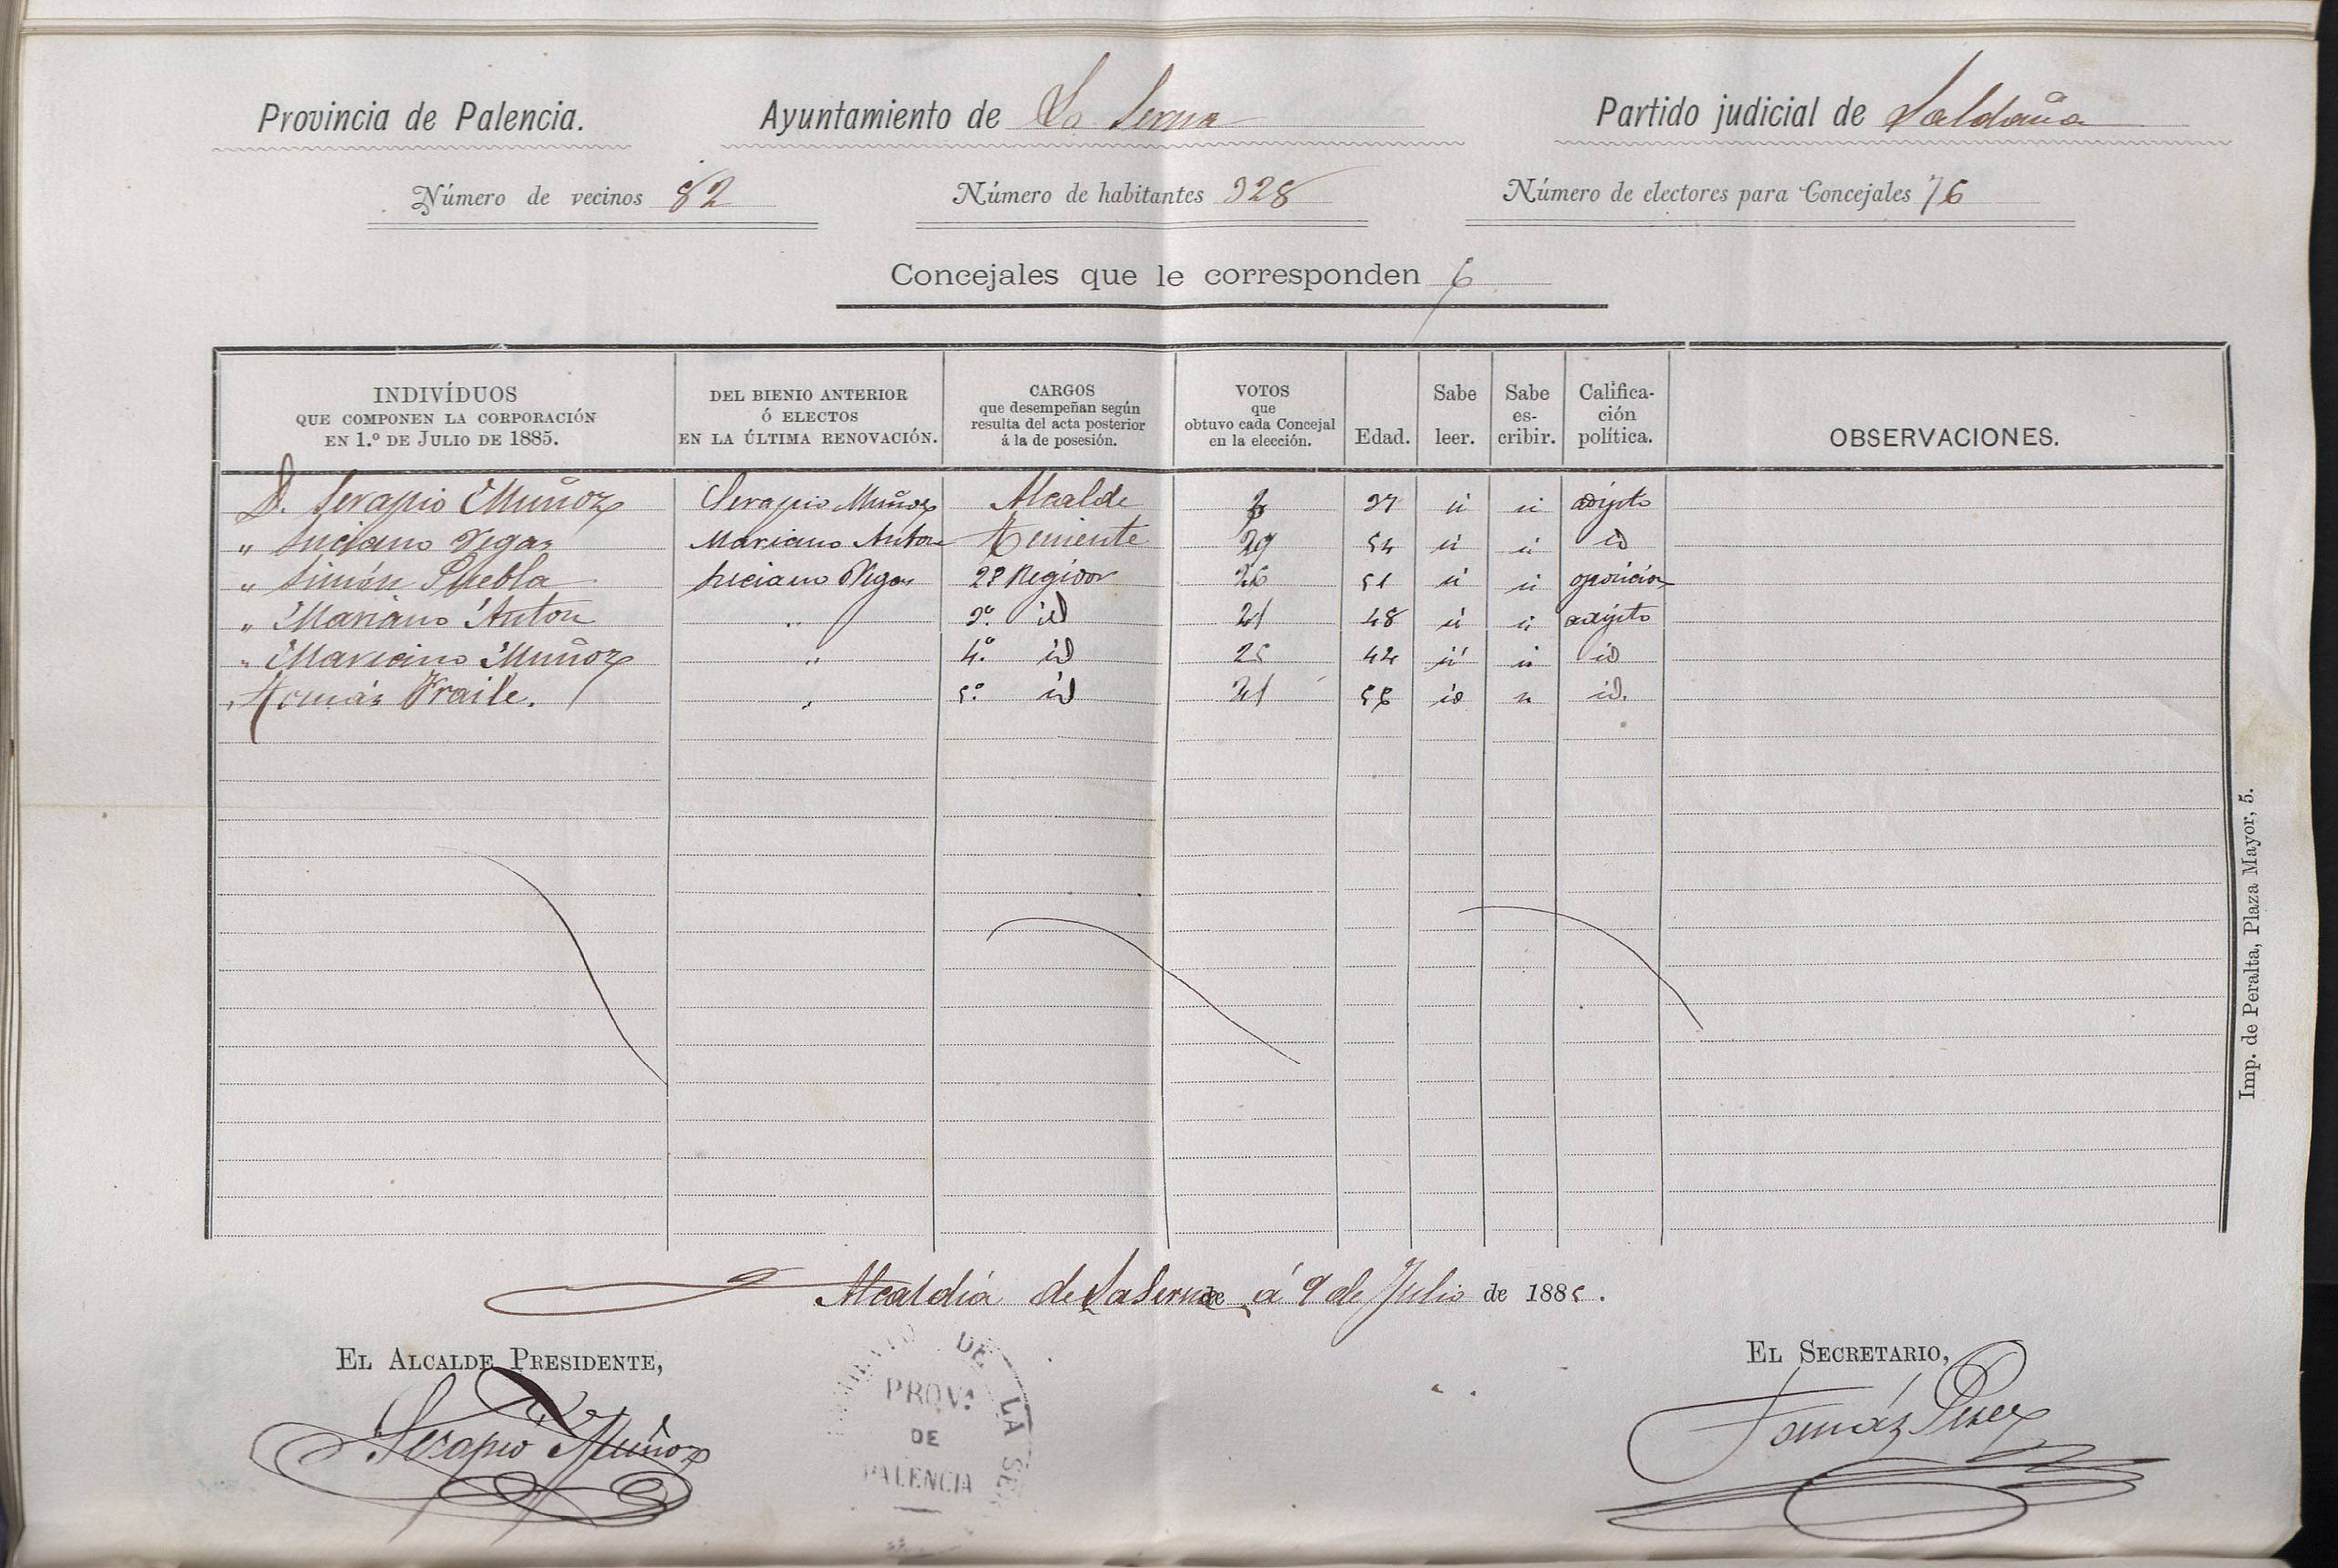 Provincia de Palencia. Ayuntamiento de La Serna Partido judicial de Saldaña
Número de vecinos 82 Número de habitantes 328 Número de electores para Concejales 76
Concejales que le corresponden 6
INDIVÍDUOS QUE COMPONEN LA CORPORACIÓN EN 1.º DE JULIO DE 1885. DEL BIENIO ANTERIOR Ó ELECTOS EN LA ÚLTIMA RENOVACIÓN. CARGOS que desempeñan según resulta del acta posterior á la de posesión. VOTOS que obtuvo cada Concejal en la elección. Edad. Sabe leer. Sabe es-cribir. Califica-ción política. OBSERVACIONES.
D. Serapio Muñoz Serapio Muñoz Alcalde 37 si si adipto
" Luciano Vegas Mariano Anton Teniente 29 54 si si id
" Simón Puebla Luciano Vegas 2º Regidor 26 51 si si oposicion
" Mariano Anton " 3º id 21 48 si si adipto
" Mariano Muñoz " 4º id 25 42 si si id
" Tomás Fraile. " 5º id 21 id " id.
Alcaldía de La Serna de á 9 de Julio de 1885.
EL ALCALDE PRESIDENTE, EL SECRETARIO,
Serapio Muñoz Tomás Perez
DE LA SE
PROV.ª
DE
PALENCIA
Imp. de Peralta, Plaza Mayor, 5.